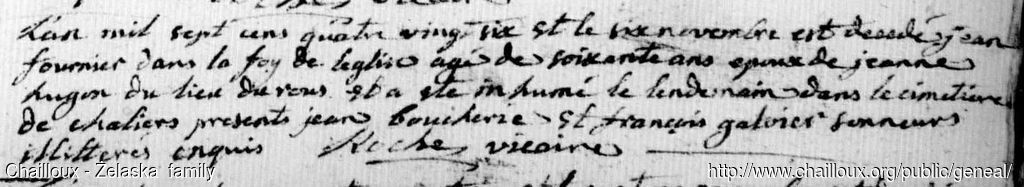 L'an mil sept cens quatre vingt six et le six novembre est decedé jean
fournier dans la foy de leglise agé de soixante ans epoux de jeanne
hugon du lieu du rous et a eté inhumé le lendemain dans le cimetiere
de chaliers presents jean boucherie et françois galvier sonneurs
illitteres enquis Roche vicaire
Chailloux - Zelaska family
http://www.chailloux.org/public/geneal/